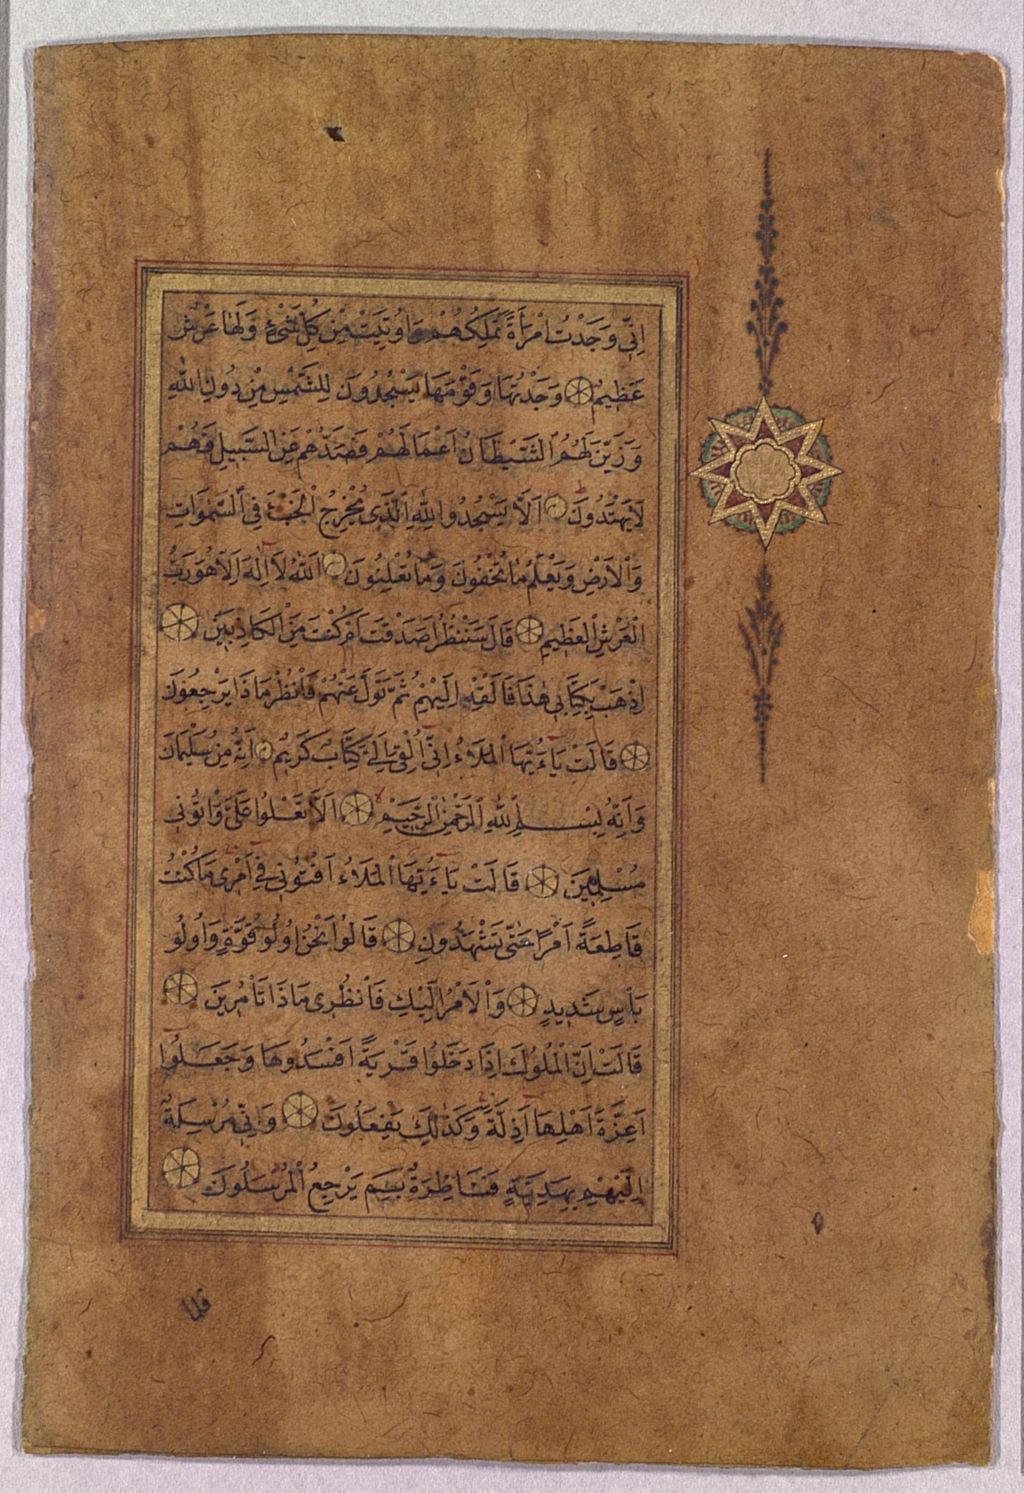 اِنّٖى وَجَدْتُ امْرَاَةً تَمْلِكُهُمْ وَاُوتِيَتْ مِنْ كُلِّ شَىْءٍ وَلَهَا عَرْشٌ
عَظٖيمٌ وَجَدْتُهَا وَقَوْمَهَا يَسْجُدُونَ لِلشَّمْسِ مِنْ دُونِ اللّٰهِ
وَزَيَّنَ لَهُمُ الشَّيْطَانُ اَعْمَالَهُمْ فَصَدَّهُمْ عَنِ السَّبٖيلِ فَهُمْ
لَايَهْتَدُونَ اَلَّا يَسْجُدُوا لِلّٰهِ الَّذٖى يُخْرِجُ الْخَبْءَ فِى السَّمٰوَاتِ
وَالْاَرْضِ وَيَعْلَمُ مَا تُخْفُونَ وَمَا تُعْلِنُونَ اَللّٰهُ لَا اِلٰهَ اِلَّا هُوَ رَبُّ
الْعَرْشِ الْعَظٖيمِ قَالَ سَنَنْظُرُ اَصَدَقْتَ اَمْ كُنْتَ مِنَ الْكَاذِبٖينَ
اِذْهَبْ بِكِتَابٖى هٰذَا فَاَلْقِهْ اِلَيْهِمْ ثُمَّ تَوَلَّ عَنْهُمْ فَانْظُرْ مَاذَا يَرْجِعُونَ
قَالَتْ يَاءَيُّهَا الْمَلَاءُ اِنّٖى اُلْقِىَ اِلَىَّ كِتَابٌ كَرٖيمٌ اِنَّهُ مِنْ سُلَيْمَانَ
وَاِنَّهُ بِسْمِ اللّٰهِ الرَّحْمٰنِ الرَّحٖيمِ اَلَّا تَعْلُوا عَلَىَّ وَاْتُونٖى
مُسْلِمٖينَ قَالَتْ يَاءَيُّهَا الْمَلَاءُ اَفْتُونٖى فٖى اَمْرٖى مَا كُنْتُ
قَاطِعَةً اَمْرًا حَتّٰى تَشْهَدُونِ قَالُوا نَحْنُ اُولُو قُوَّةٍ وَاُولُو
بَاْسٍ شَدٖيدٍ وَالْاَمْرُ اِلَيْكِ فَانْظُرٖى مَاذَا تَاْمُرٖينَ
قَالَتْ اِنَّ الْمُلُوكَ اِذَا دَخَلُوا قَرْيَةً اَفْسَدُوهَا وَجَعَلُوا
اَعِزَّةَ اَهْلِهَا اَذِلَّةً وَكَذٰلِكَ يَفْعَلُونَ وَاِنّٖى مُرْسِلَةٌ
اِلَيْهِمْ بِهَدِيَّةٍ فَنَاظِرَةٌ بِمَ يَرْجِعُ الْمُرْسَلُونَ
فلما